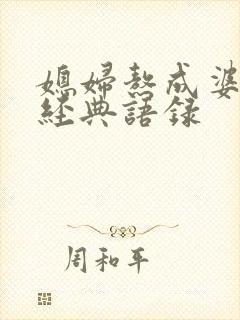 媳婦熬成婆
經典語錄
周和平